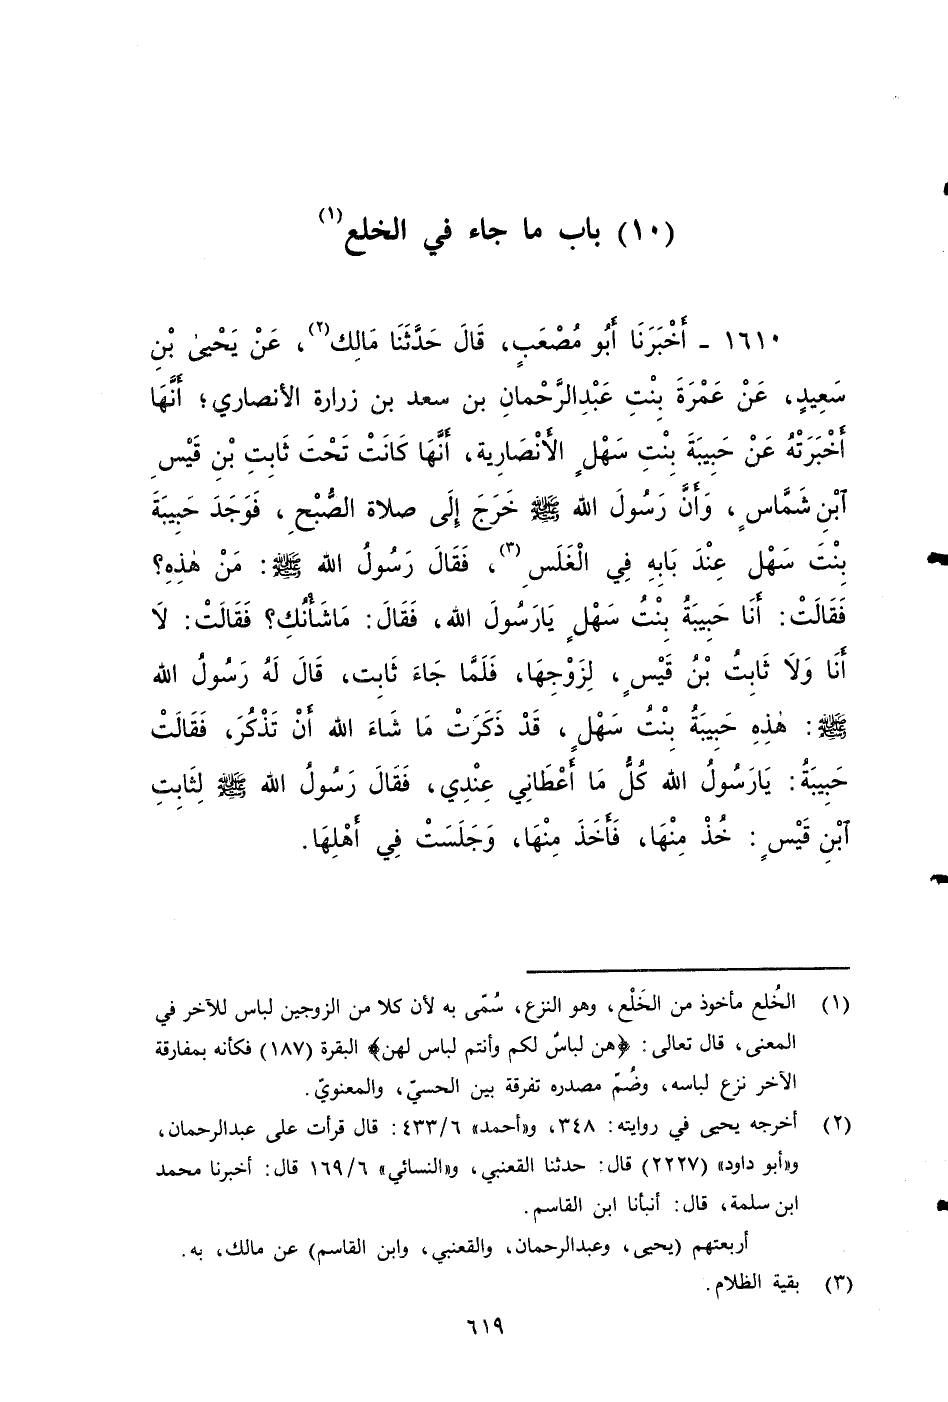 (١٠) باب ما جاء في الخلع(١)
١٦١٠ ـ أَخْبَرَنَا أَبُو مُصْعَبٍ، قَالَ حَدَّثَنَا مَالِك(٢)، عَنْ يَحْيىٰ بْنِ
سَعِيدٍ، عَنْ عَمْرَةَ بِنْتِ عَبْدِالرَّحْمانِ بن سعد بن زرارة الأنصاري؛ أَنَّهَا
أَخْبَرَتْهُ عَنْ حَبِيبَةَ بِنْتِ سَهْلٍ الأَنْصَارِية، أَنَّهَا كَانَتْ تَحْتَ ثَابِتِ بْنِ قَيْسِ
آبْنِ شَمَّاسٍ، وَأَنَّ رَسُولَ الله ﷺ خَرَجَ إِلَى صلاة الصُّبْحِ، فَوَجَدَ حَبِيبَةَ
بِنْتَ سَهْلٍ عِنْدَ بَابِهِ فِي الْغَلَسِ(٣)، فَقَالَ رَسُولُ الله ﷺ: مَنْ هٰذِهِ؟
فَقَالَتْ: أَنَا حَبِيبَةُ بِنْتُ سَهْلٍ يَارَسُولَ الله، فَقَالَ: مَاشَأْنُكِ؟ فَقَالَتْ: لَا
أَنَا وَلَا ثَابِتُ بْنُ قَيْسٍ، لِزَوْجِهَا، فَلَمَّا جَاءَ ثَابِت، قَالَ لَهُ رَسُولُ الله
ﷺ: هٰذِهِ حَبِيبَةُ بِنْتُ سَهْلٍ، قَدْ ذَكَرَتْ مَا شَاءَ الله أَنْ تَذْكُرَ، فَقَالَتْ
حَبِيبَةُ: يَارَسُولُ الله كُلُّ مَا أَعْطَانِي عِنْدِي، فَقَالَ رَسُولُ الله ﷺ لِثَابِتِ
آبْنِ قَيْسٍ: خُذْ مِنْهَا، فَأَخَذَ مِنْهَا، وَجَلَسَتْ فِي أَهْلِهَا.
(١) الخُلع مأخوذ من الخَلْع، وهو النزع، سُمّى به لأن كلا من الزوجين لباس للآخر في
المعنى، قال تعالى: ﴿هن لباسٌ لكم وأنتم لباس لهن﴾ البقرة (١٨٧) فكأنه بمفارقة
الآخر نزع لباسه، وضُمّ مصدره تفرقة بين الحسيّ، والمعنويّ.
(٢) أخرجه يحيى في روايته: ٣٤٨، و«أحمد» ٤٣٣/٦: قال قرأت على عبدالرحمان،
و«أبو داود» (٢٢٢٧) قال: حدثنا القعنبي، و«النسائي» ١٦٩/٦ قال: أخبرنا محمد
ابن سلمة، قال: أنبأنا ابن القاسم.
أربعتهم (يحيى، وعبدالرحمان، والقعنبي، وابن القاسم) عن مالك، به.
(٣) بقية الظلام.
٦١٩